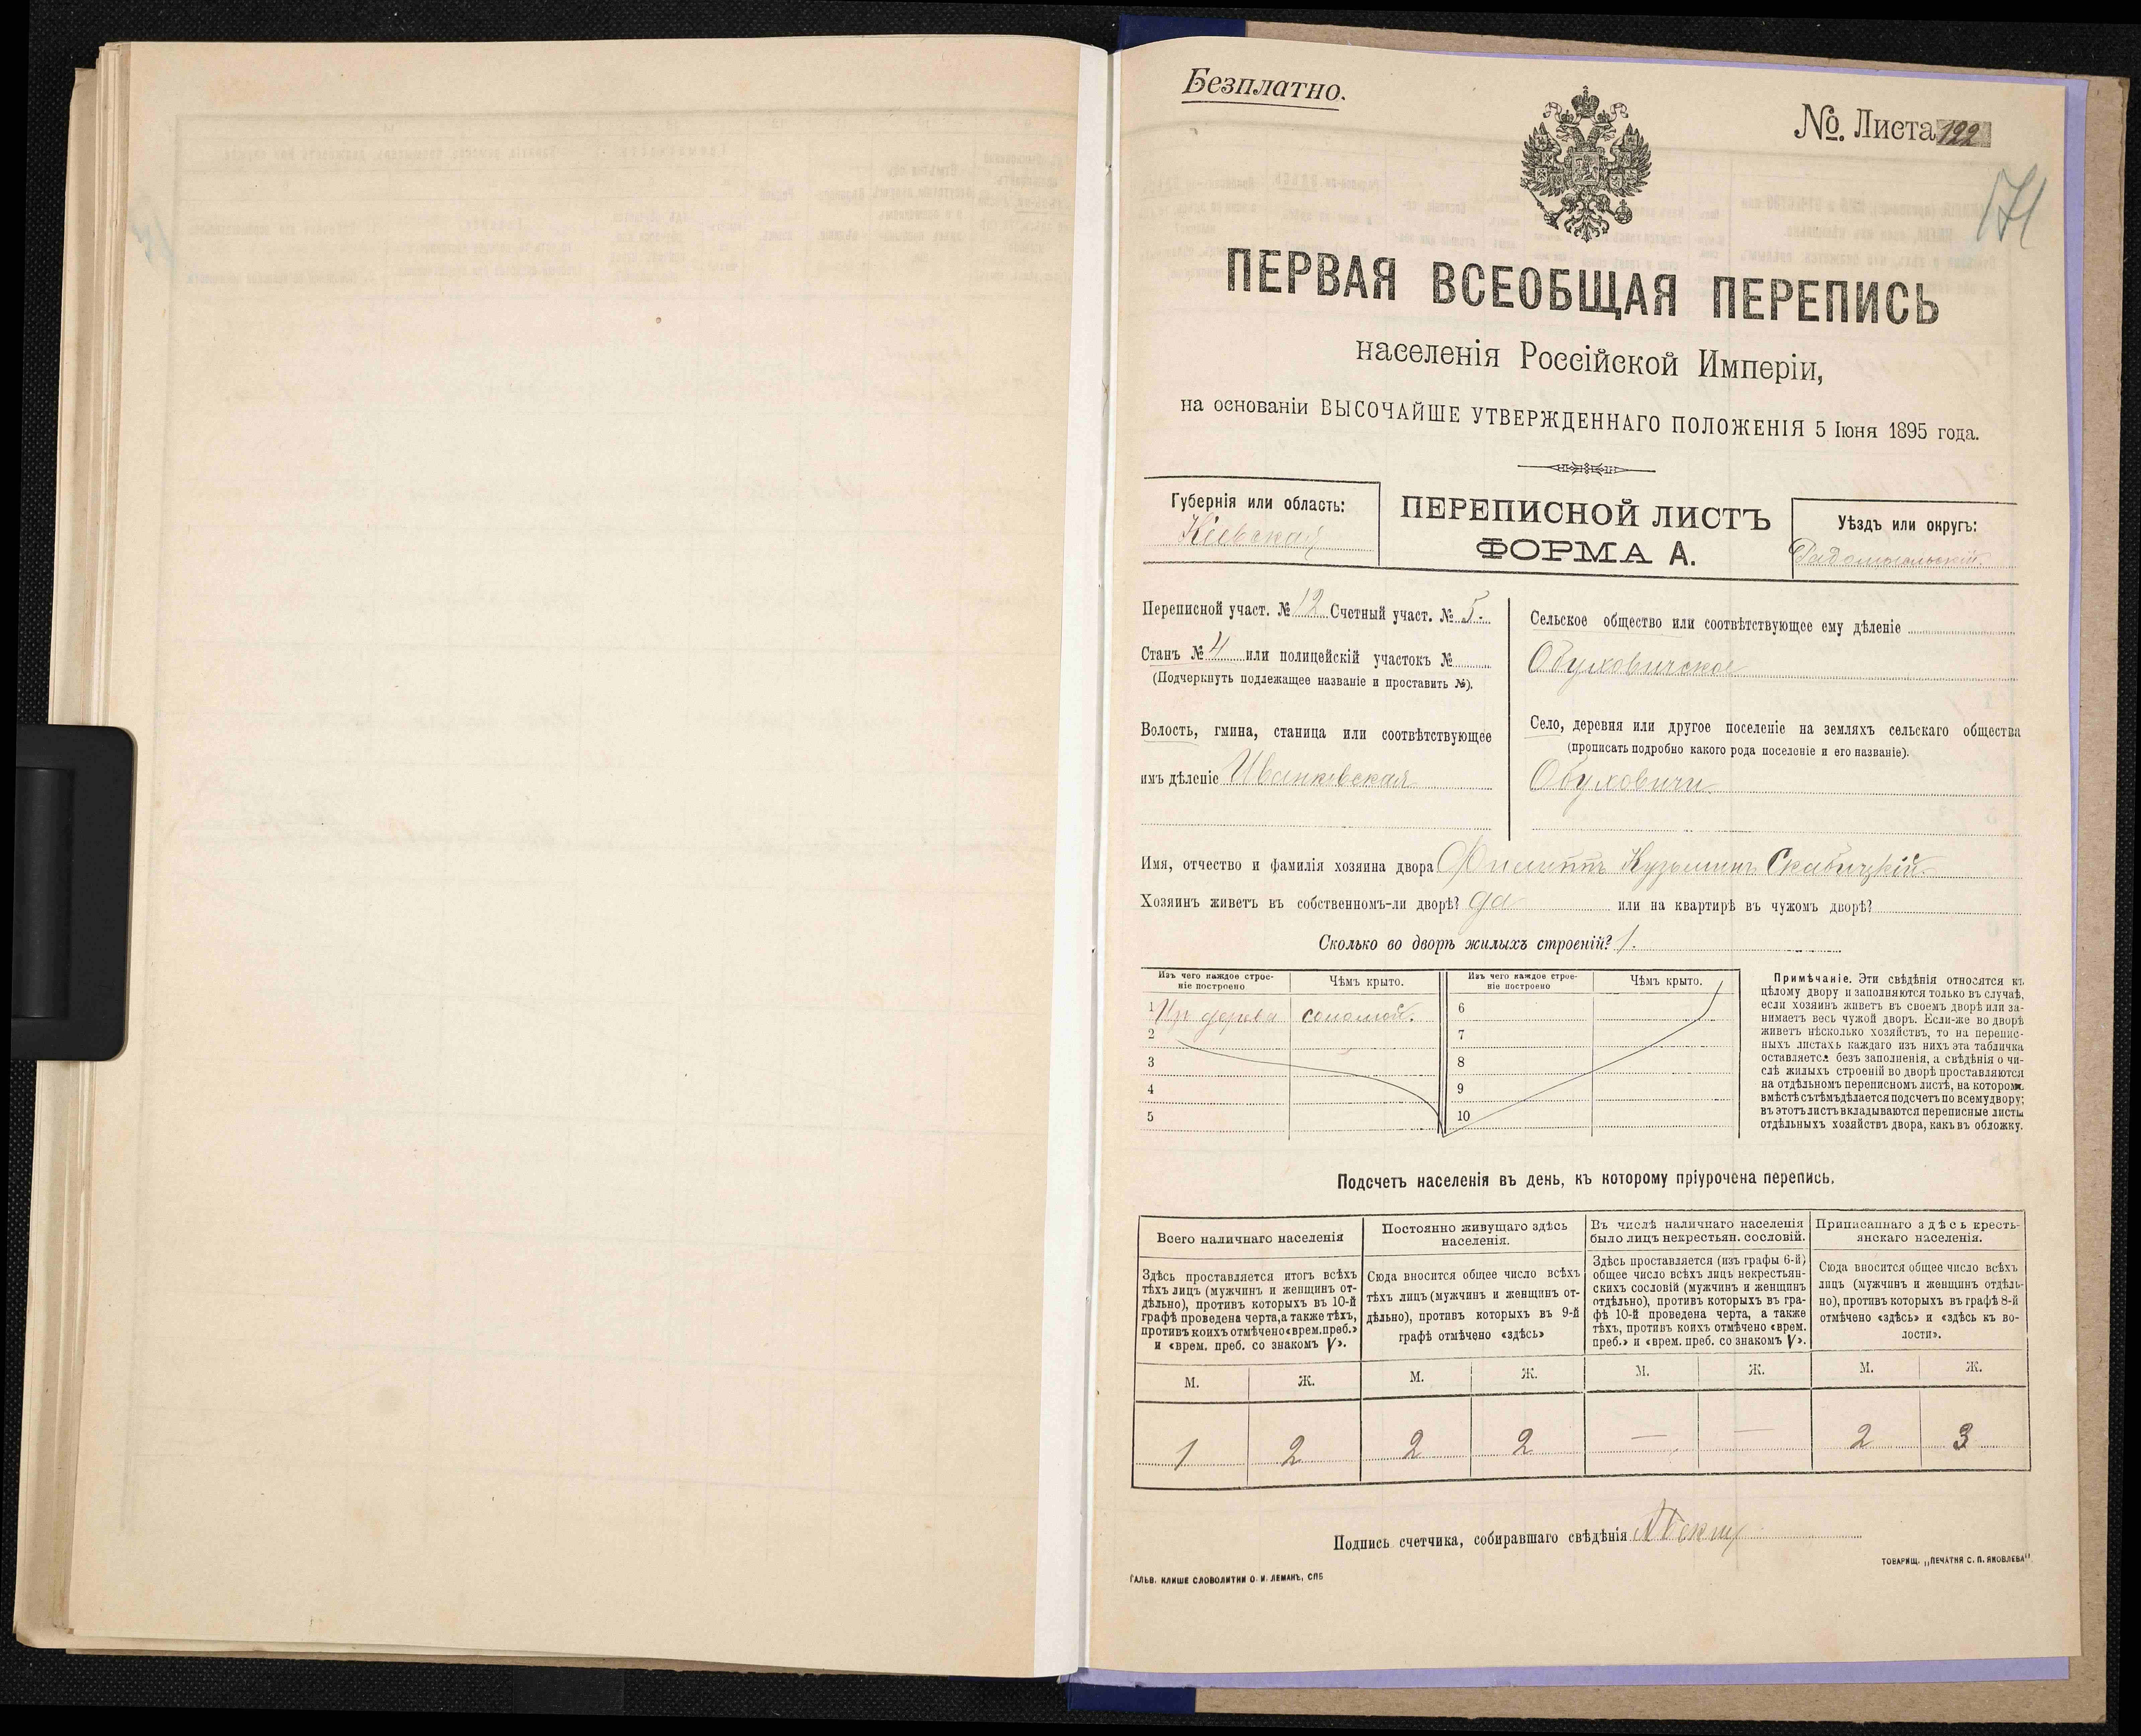 Безплатно.
№. Листа 122
171
ПЕРВАЯ ВСЕОБЩАЯ ПЕРЕПИСЬ
населенія Россійской Имперіи,
на основаніи ВЫСОЧАЙШЕ УТВЕРЖДЕННАГО ПОЛОЖЕНІЯ 5 Іюня 1895 года.
Губернія или область:
Кіевская
ПЕРЕПИСНОЙ ЛИСТЪ
ФОРМА А.
Уѣздъ или округъ:
Радомысльскій
Переписной участ. № 12 Счетный участ. № 5.
Станъ № 4 или полицейскій участокъ №
(Подчеркнуть подлежащее названіе и проставить №).
Волость, гмина, станица или соотвѣтствующее
имъ дѣленіе Иванковская
Сельское общество или соотвѣтствующее ему дѣленіе
Обуховичское
Село, деревня или другое поселеніе на земляхъ сельскаго общества
(прописать подробно какого рода поселеніе и его названіе).
Обуховичи
Имя, отчество и фамилія хозяина двора Филиппъ Кузьминъ Скабицкій
Хозяинъ живетъ въ собственномъ-ли дворѣ? да или на квартирѣ въ чужомъ дворѣ?
Сколько во дворѣ жилыхъ строеній? 1.
Изъ чего каждое строе-
ніе построено
Чѣмъ крыто.
Изъ чего каждое строе-
ніе построено
Чѣмъ крыто.
1 Изъ дерева соломой.
2
3
4
5
6
7
8
9
10
Примѣчаніе. Эти свѣдѣнія относятся къ
цѣлому двору и заполняются только въ случаѣ,
если хозяинъ живетъ въ своемъ дворѣ или за-
нимаетъ весь чужой дворъ. Если-же во дворѣ
живетъ нѣсколько хозяйствъ, то на перепис-
ныхъ листахъ каждаго изъ нихъ эта табличка
оставляется безъ заполненія, а свѣдѣнія о чи-
слѣ жилыхъ строеній во дворѣ проставляются
на отдѣльномъ переписномъ листѣ, на которомъ
вмѣстѣ съ тѣмъ дѣлается подсчетъ по всему двору;
въ этотъ листъ вкладываются переписные листы
отдѣльныхъ хозяйствъ двора, какъ въ обложку.
Подсчетъ населенія въ день, къ которому пріурочена перепись.
Всего наличнаго населенія
Здѣсь проставляется итогъ всѣхъ
тѣхъ лицъ (мужчинъ и женщинъ от-
дѣльно), противъ которыхъ въ 10-й
графѣ проведена черта, а также тѣхъ,
противъ коихъ отмѣчено «врем. преб.»
и «врем. преб. со знакомъ V».
Постоянно живущаго здѣсь
населенія.
Сюда вносится общее число всѣхъ
тѣхъ лицъ (мужчинъ и женщинъ от-
дѣльно), противъ которыхъ въ 9-й
графѣ отмѣчено «здѣсь»
Въ числѣ наличнаго населенія
было лицъ некрестьян. сословій.
Здѣсь проставляется (изъ графы 6-й)
общее число всѣхъ лицъ некрестьян-
скихъ сословій (мужчинъ и женщинъ
отдѣльно), противъ которыхъ въ гра-
фѣ 10-й проведена черта, а также
тѣхъ, противъ коихъ отмѣчено «врем.
преб.» и «врем. преб. со знакомъ V».
Приписаннаго здѣсь кресть-
янскаго населенія.
Сюда вносится общее число всѣхъ
лицъ (мужчинъ и женщинъ отдѣль-
но), противъ которыхъ въ графѣ 8-й
отмѣчено «здѣсь» и «здѣсь къ во-
лости».
М. Ж. М. Ж. М. Ж. М. Ж.
1 2 2 2 — — 2 3
Подпись счетчика, собиравшаго свѣдѣнія
ГАЛЬВ. КЛИШЕ СЛОВОЛИТНИ О. И. ЛЕМАНЪ, СПБ
ТОВАРИЩ. „ПЕЧАТНЯ С. П. ЯКОВЛЕВА"